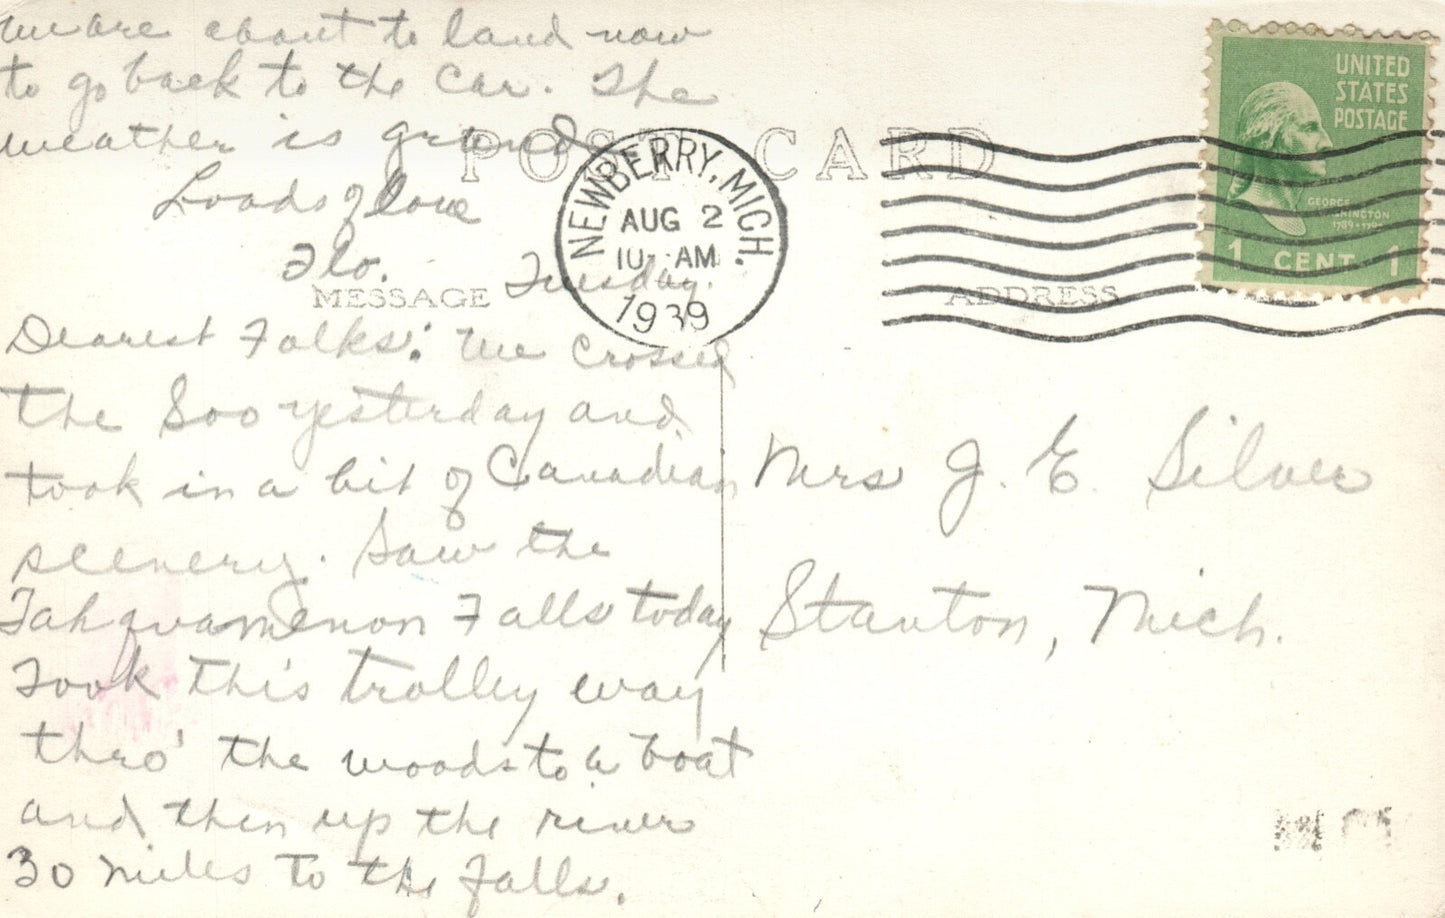 we are about to land now
to go back to the car. The
weather is grand
Loads of love
Flo.
POST CARD
NEWBERRY, MICH.
AUG 2
10 - AM
1939
UNITED
STATES
POSTAGE
GEORGE
WASHINGTON
1 CENT 1
MESSAGE
ADDRESS
Tuesday.
Dearest Folks: We crossed
the Soo yesterday and
took in a bit of Canadian
scenery. Saw the
Tahquamenon Falls today
Took this trolley way
thro' the woods to a boat
and then up the river
30 miles to the falls.
Mrs J. E. Silver
Stanton, Mich.